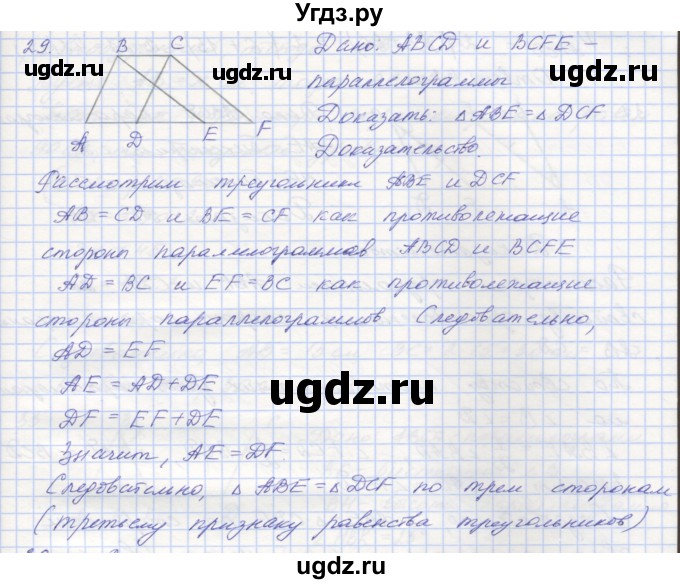 Угдз.ру
29. B C Дано: ABCD и BCFE –
параллелограммы
Доказать: △ABE = △DCF
A D E F
Доказательство.
Рассмотрим треугольники ABE и DCF
AB = CD и BE = CF как противолежащие
стороны паралилограммов ABCD и BCFE
AD = BC и EF = BC как противолежащие
стороны параллелограммов Следовательно,
AD = EF
AE = AD + DE
DF = EF + DE
Значит, AE = DF.
Следовательно, △ ABE = △ DCF по трем сторонам
(третьему признаку равенства треугольников)
ugdz.ru
ugdz.ru
ugdz.ru
ugdz.ru
ugdz.ru
ugdz.ru